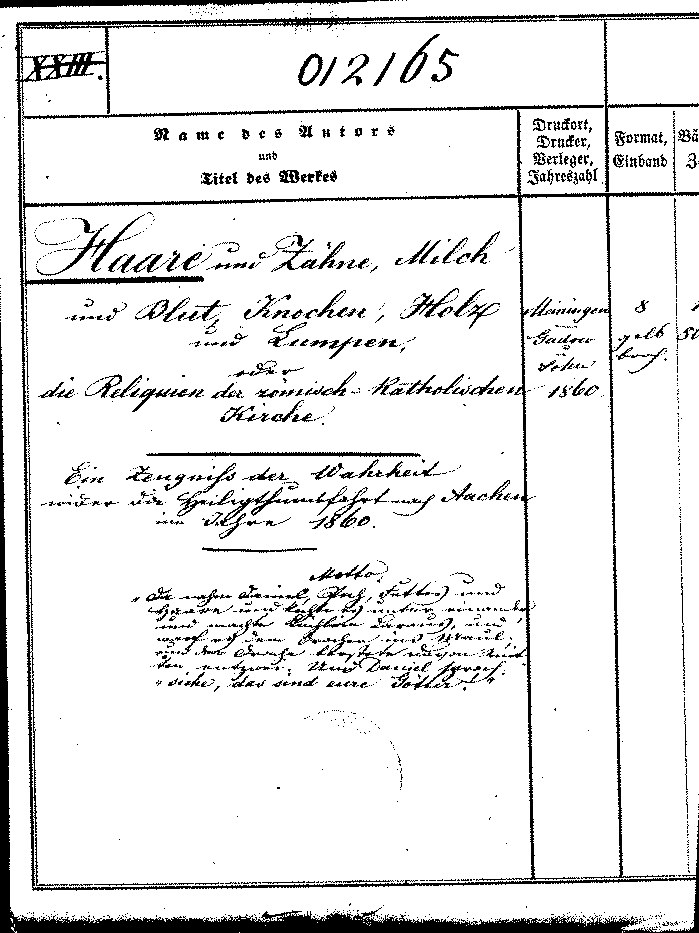 XXIII.
012165
Name des Autors
und
Titel des Werkes
Druckort,
Drucker,
Verleger,
Jahreszahl
Format,
Einband
Bä
Haare und Zähne, Milch
und Blut, Knochen, Holz
und Lumpen,
oder
die Reliquien der römisch-katholischen
Kirche.
Meiningen
Gadow
u
Sohn
1860
8
gelb
broch.
Ein Zeugniss der Wahrheit
wider die Heiligthumsfahrt nach Aachen
im Jahre 1860.
Motto.
"Da nahm Daniel, Pech, Fettes und
Haare und kochte es unter einander
und machte Küchlein daraus, und
warf es dem Drachen ins Maul;
und der Drache berstete davon mit
ten entzwei. Und Daniel sprach:
"siehe, das sind eure Götter!"